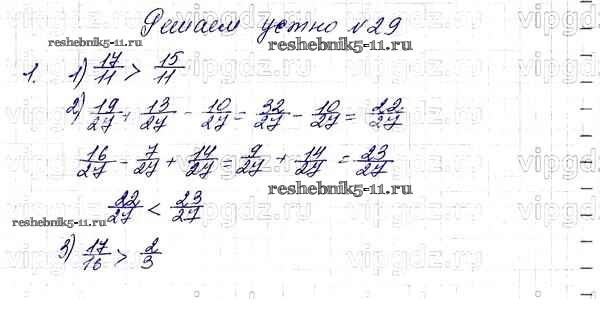 Решаем устно №29
reshebnik5-11.ru reshebnik5-11.ru
1. 1) 17/11 > 15/11
2) 19/27 + 13/27 - 10/27 = 32/27 - 10/27 = 22/27
16/27 - 7/27 + 14/27 = 9/27 + 14/27 = 23/27
reshebnik5-11.ru
22/27 < 23/27
reshebnik5-11.ru
3) 17/16 > 2/3
vipgdz.ru